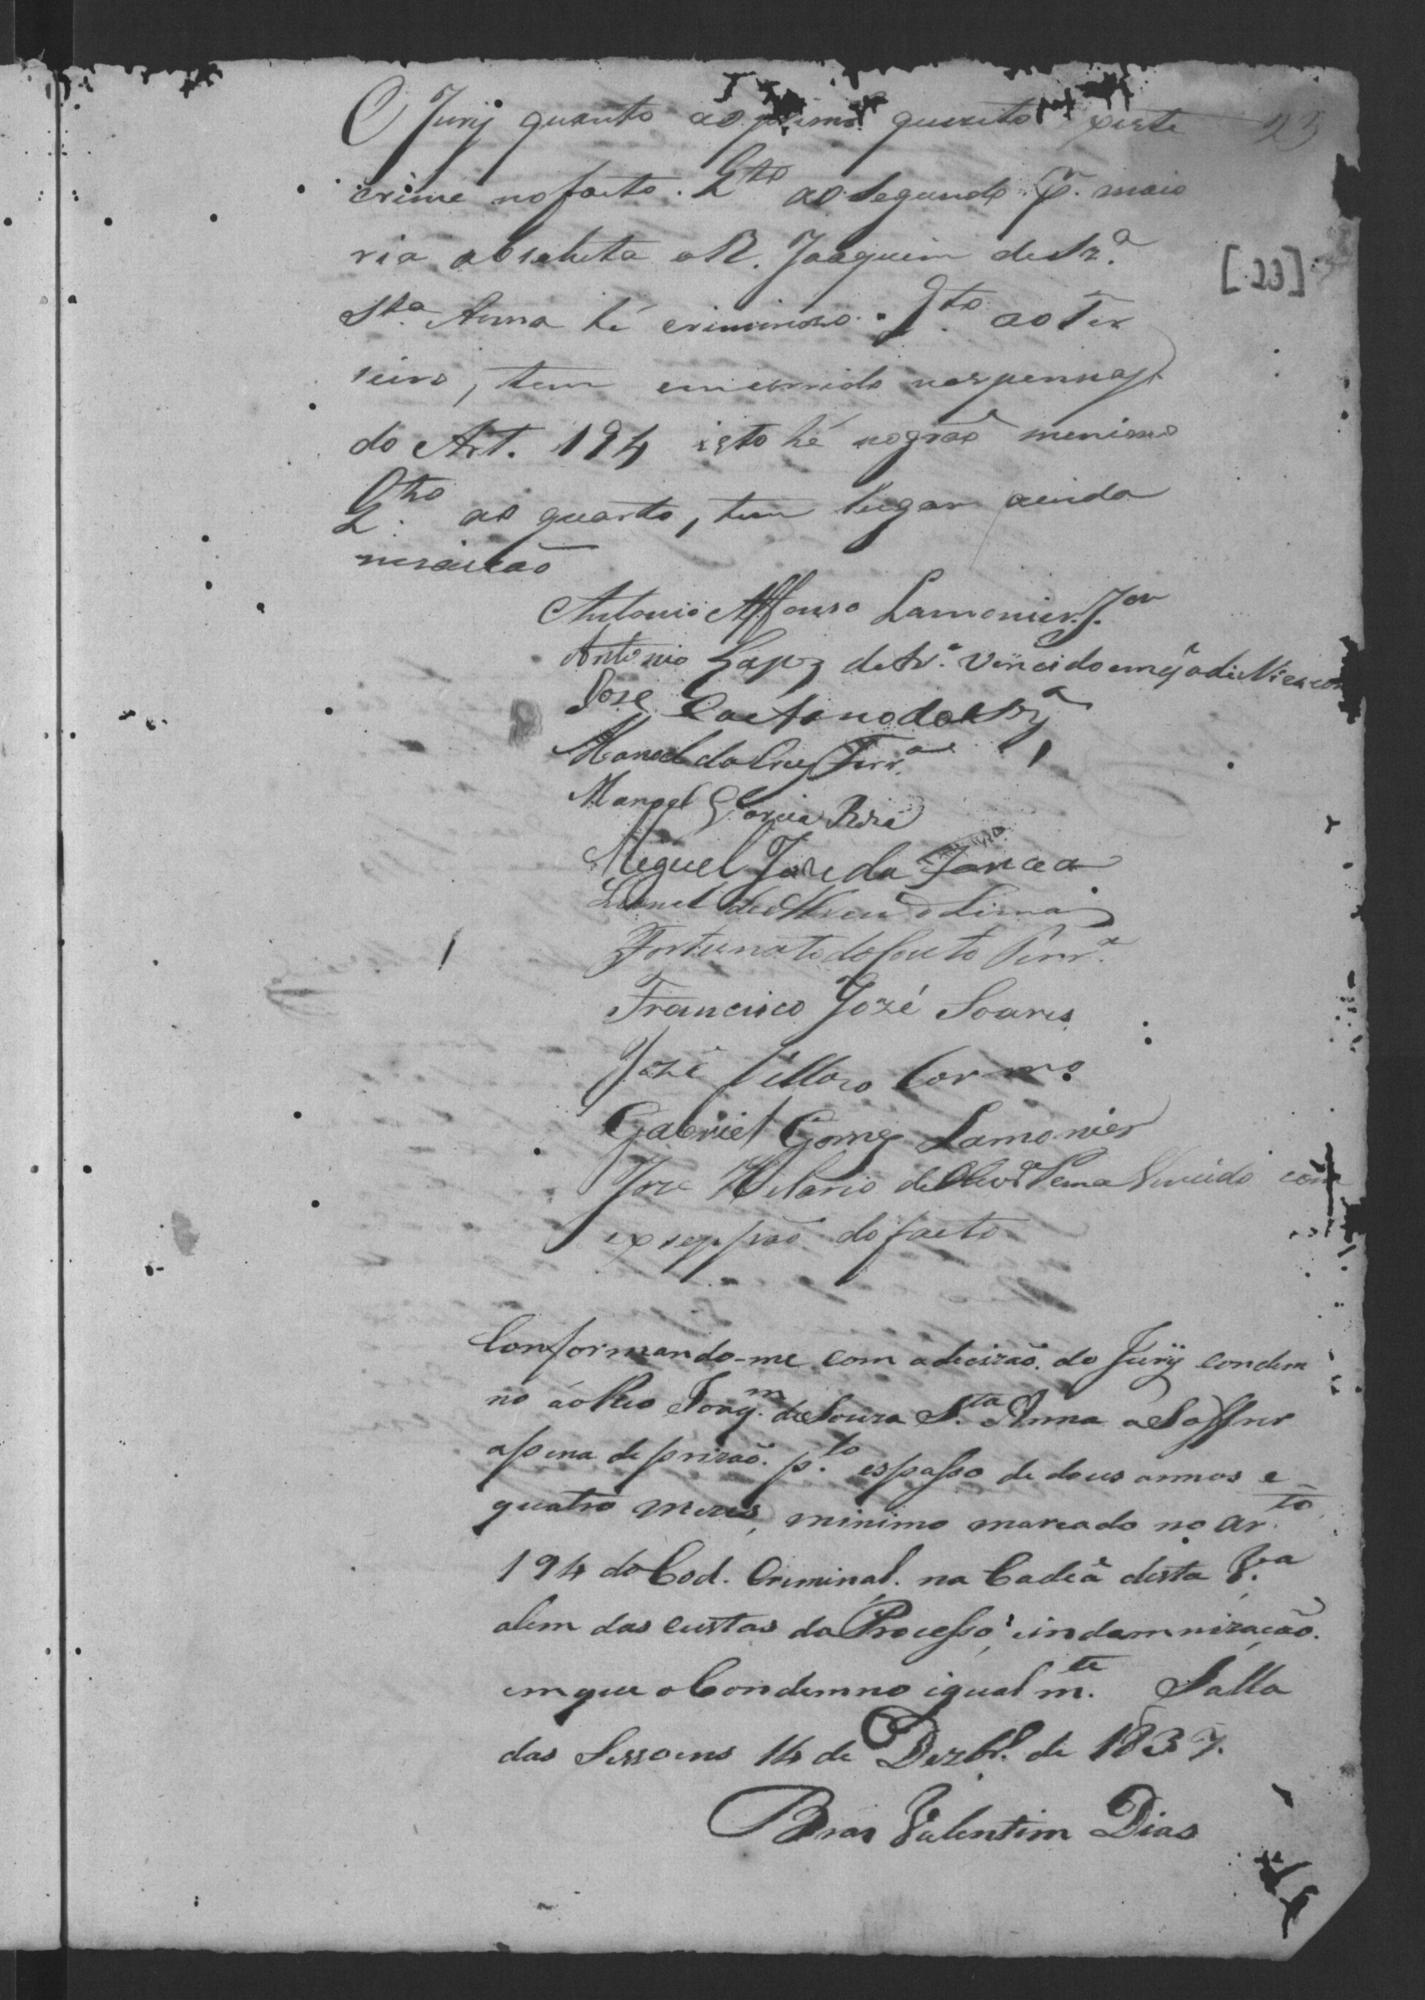 O Jury quanto ao primrº quezito existe 23
crime no facto. Qto ao Segundo pr. maio
ria absoluta o R. Joaquim de Sza.
Sta. Anna hé criminozo. Qto. ao Ter
seiro, tem encorrido nas pennas
do Art. 194 isto hé no gráo menimo
Qto. ao quarto, tem lugar a inda
[23]
Antonio Affonso Lamonier Jor
Antonio Lopz de Vencido em
José Caetano da
Manoel da Cruz Ferra.
Manoel Garcia
Miguel Joze da Fonceca
Lionel de Abreu Lima
Fortunato do Couto Perra.
Francisco Jozé Soares
Jozé
Gabriel Gomes Lamonier
Joze Hilario de Olivra Pena Vencido com
exsepsão do facto
Conformando-me com a decizaõ do Jury condem
no áo Reo Joaqm. de Souza Sta Anna a Soffrer
a pena de prizaõ. plo. espasso de dous annos e
quatro mezes, minimo marcado no arto.
194 do Cod. Criminal. na Cadeã desta Va.
alem das custas do Processo, indamnizacaõ.
em que o Condemno igualmte. Salla
das Sessoens 14 de Dezbr. de 1837.
Bras Valentim Dias